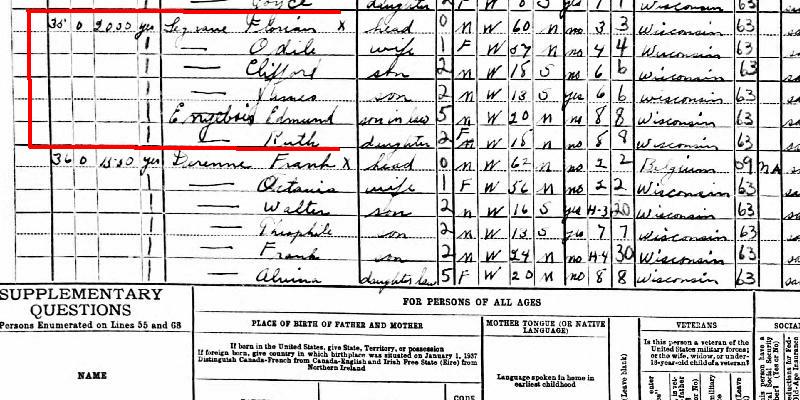 Joyce daughter 2 F W 6 S yes 1 1 Wisconsin 63
35 0 2000 yes Florian X head 0 m W 60 m no 3 3 Wisconsin 63
— Odile wife 1 F W 57 m no 4 4 Wisconsin 63
— Clifford son 2 m W 18 S no 6 6 Wisconsin 63
— James son 2 m W 13 S yes 6 6 Wisconsin 63
Englebois Edmund son in law 5 m W 20 m no 8 8 Wisconsin 63
— Ruth daughter 2 F W 18 m no 8 8 Wisconsin 63
36 0 1500 yes Derenne Frank X head 0 m W 62 m no 2 2 Belgium 09 NA
— Octavia wife 1 F W 56 m no 2 2 Wisconsin 63
— Walter son 2 m W 16 S yes H-3 20 Wisconsin 63
— Theophile son 2 m W 13 S yes 7 7 Wisconsin 63
— Frank son 2 m W 24 m no H-4 30 Wisconsin 63
— Alvina daughter law 5 F W 20 m no 8 8 Wisconsin 63
SUPPLEMENTARY
QUESTIONS
Persons Enumerated on Lines 55 and 68
NAME
FOR PERSONS OF ALL AGES
PLACE OF BIRTH OF FATHER AND MOTHER
If born in the United States, give State, Territory, or possession
If foreign born, give country in which birthplace was situated on January 1, 1937
Distinguish Canada-French from Canada-English and Irish Free State (Eire) from
Northern Ireland
CODE
MOTHER TONGUE (OR NATIVE
LANGUAGE)
Language spoken in home in
earliest childhood
(Leave blank)
VETERANS
Is this person a veteran of the
United States military forces;
or the wife, widow, or under-
18-year-old child of a veteran?
military
(Leave
SOCIA
this person have a
al Social Security
ber? (Yes or No)
eductions for Fed-
Old-Age Insurance